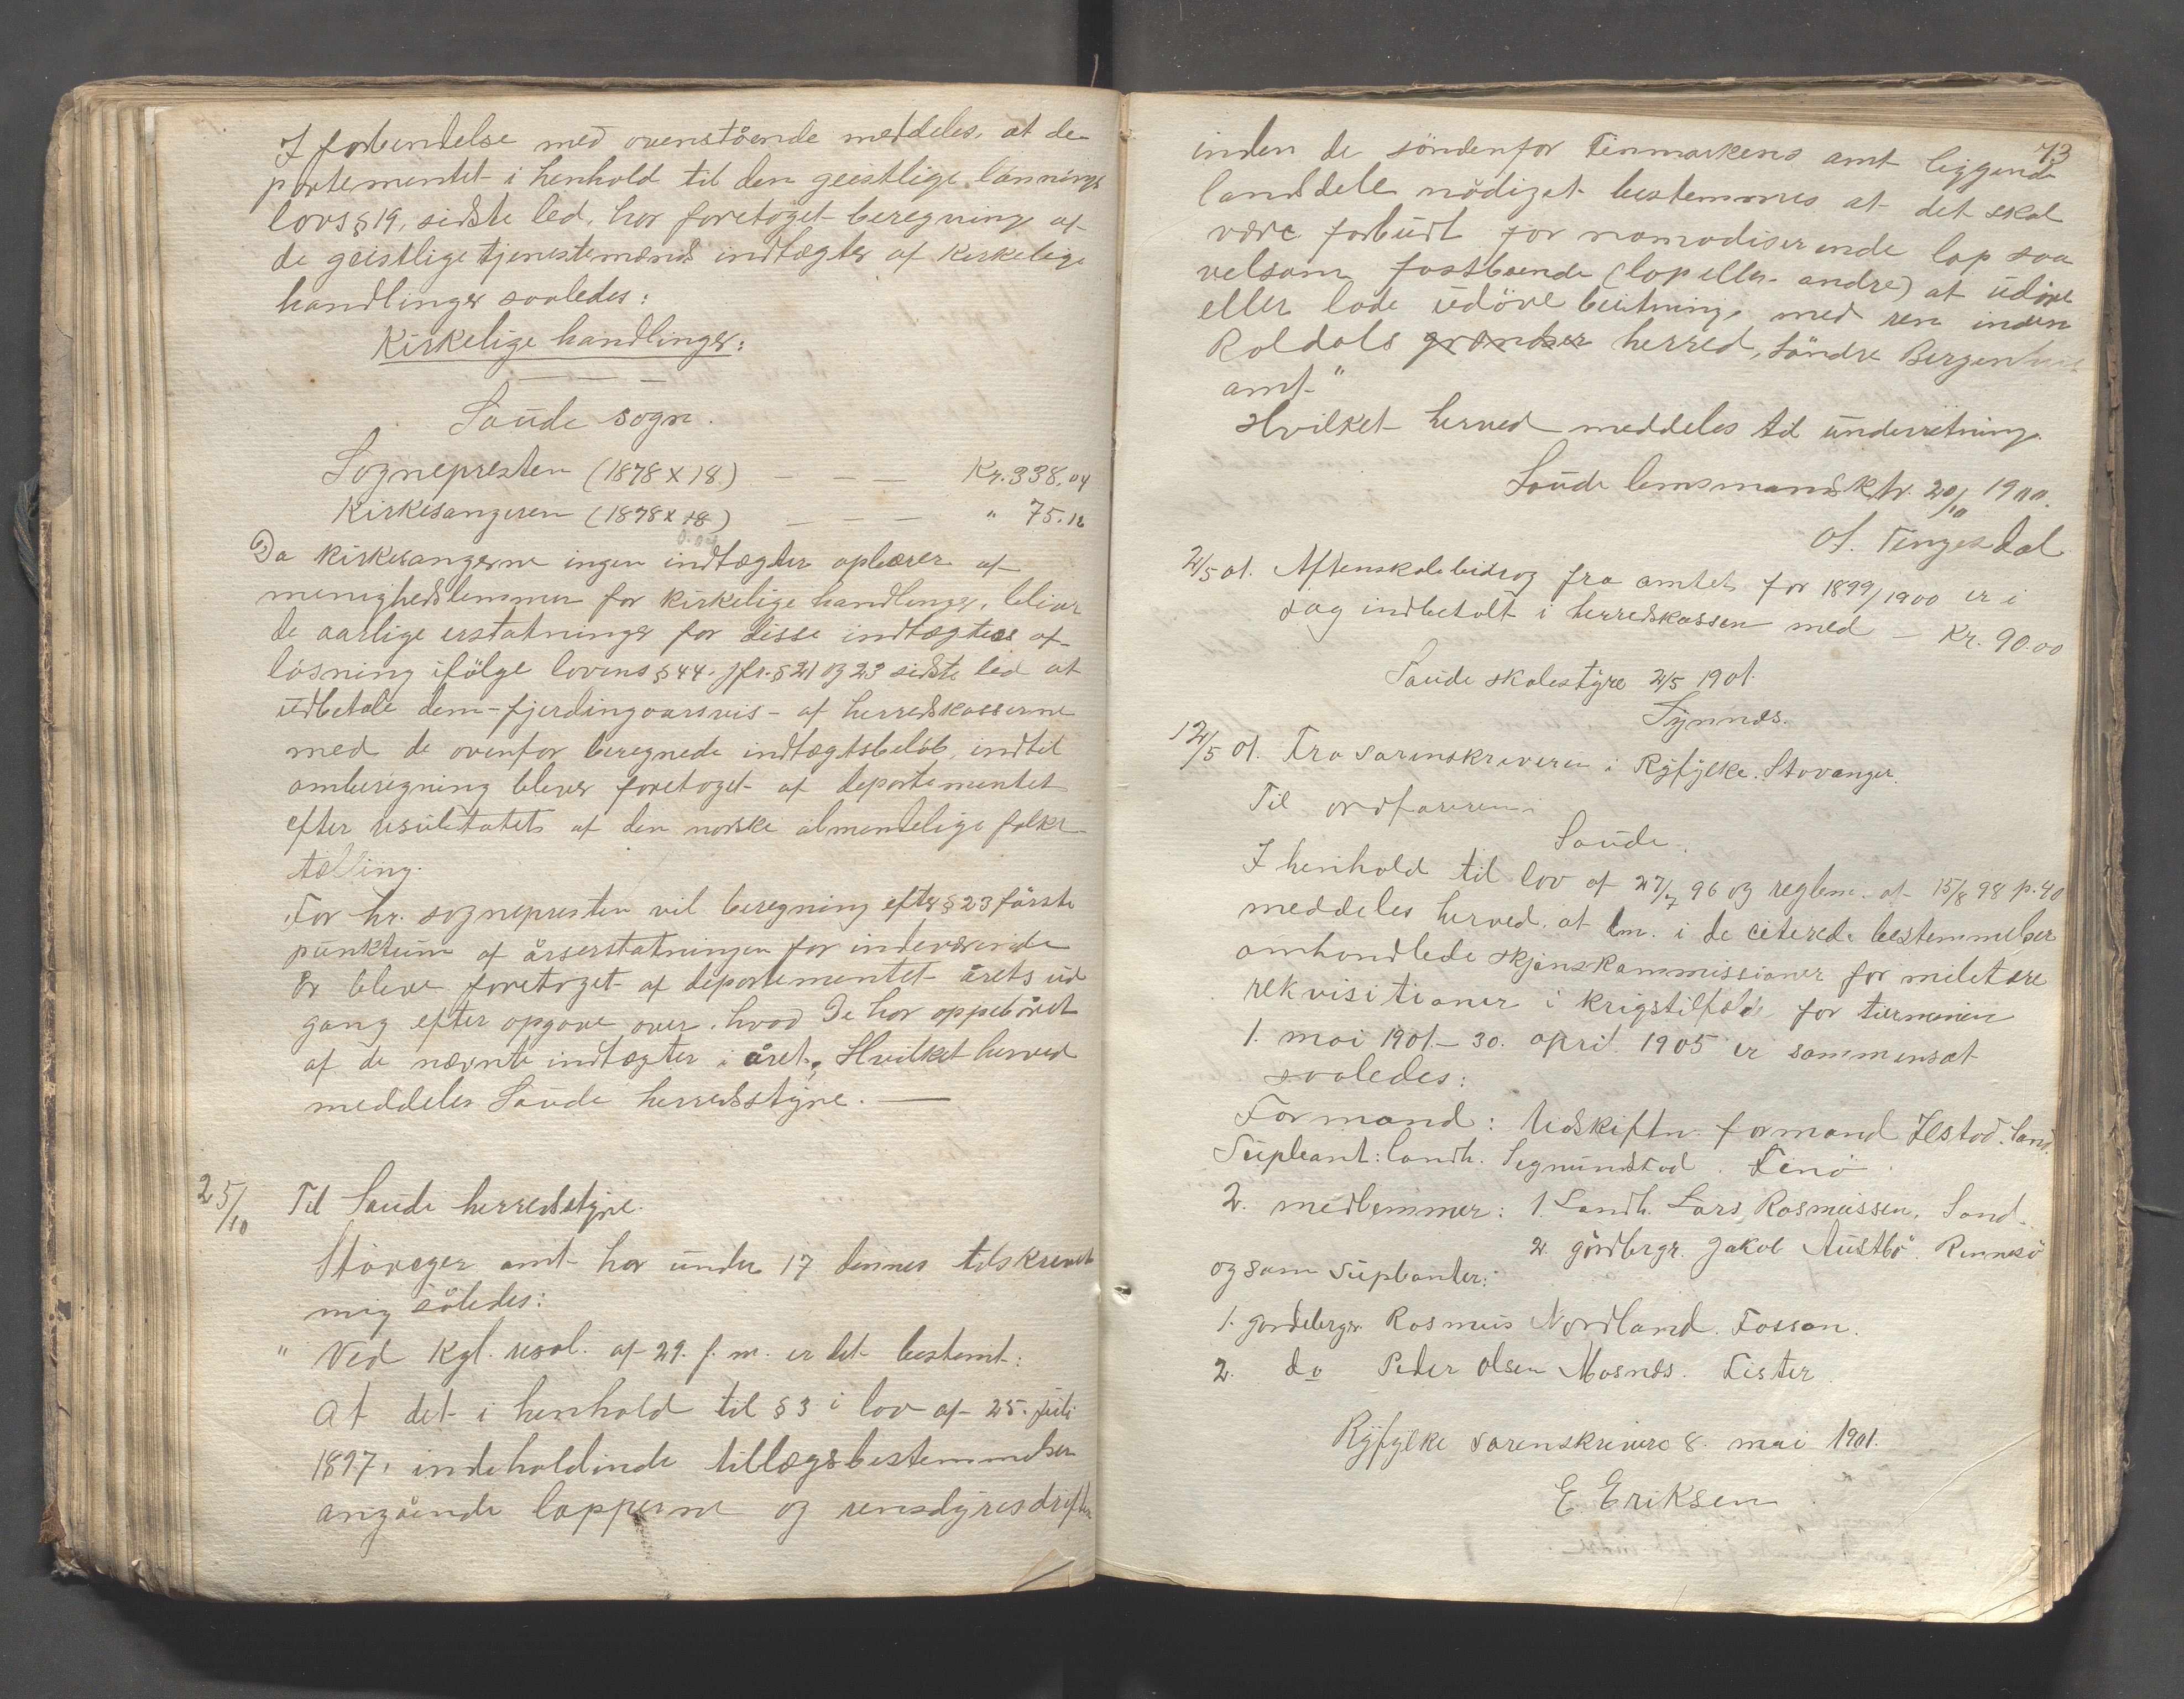 I forbindelse med ovenstående meddeles, at de-
partementet i henhold til den geistlige lønnings
lovs § 19, sidste led, har foretaget beregning af
de geistlige tjenestemænds indtægter af kirkelige
handlinger saaledes:
Kirkelige handlinger:
Saude sogn.
Sognepresten (1878 x 18.) — — — Kr. 338,04
Kirkesangeren (1878 x 18) — — — " 75.12
0.04
Da kirkesangerne ingen indtægter opbærer af
menighedslemmer for kirkelige handlinger, bliver
de aarlige erstatninger for disse indtægters af-
løsning ifølge lovens § 44. jfr. § 21 og 23 sidste led at
udbetale dem - fjerdingaarsvis - af herredskasserne
med de ovenfor beregnede indtægtsbeløb, indtil
omberegning bliver foretaget af departementet
efter resultatet af den norske almindelige folke-
tælling.
For hr. sognepresten vil beregning efter § 23 første
punktum af årserstatningen for indeværende
år blive foretaget af departementet årets ud
gang efter opgave over, hvad De har oppebåret
af de nævnte indtægter i året. Hvilket herved
meddeles Saude herredsstyre. —
25/10 Til Saude herredstyre.
Stavager amt har under 17 dennes tilskrevet
mig således:
" Ved Kgl. resol. af 29. f. m. er det bestemt:
At det i henhold til § 3 i lov af 25. juli
1897, indeholdinde tillægsbestemmelser
angående lapperne og rensdyresdriften
73
inden de søndenfor Finmarkens amt liggende
landdele nødiget bestemmes at det skal
være forbudt for nomadiserende lap saa
velsom fastboende (lap eller andre) at udøve
eller lade udøve beitning, med ren inden
Roldals grænser herred, Søndre Bergenhus
amt"
Hvilket herved meddeles til underretning.
Saude lensmandsktr. 20/10 1900.
Of. Tengesdal
2/5 01. Aftenskolebidrag fra amtet for 1899/1900 er i
dag indbetalt i herredskassen med — Kr. 90.00
Saude skolestyre 2/5 1901.
Synnes.
12/5 01. Fra sorenskriveren i Ryfylke. Stavanger.
Til ordføreren i
Saude.
I henhold til lov af 27/7 96 og reglem. af 15/8 98 p. 40
meddeles herved, at den i de citerede bestemmelser
omhandlede skjønskommissioner for militære
rekvisitioner i krigstilfælde for terminen
1. mai 1901 – 30. april 1905 er sammensat
saaledes:
Formand: Udskiftn. formand Ilstad. Sand.
Supleant: landh. Segnundstad. Finø.
2. medlemmer: 1. Landh. Lars Rasmussen, Sand.
2. gårdbrgr. Jakob Austbø. Rennesø
og som supleanter:
1. gardebrger. Rasmus Nordland. Fossan.
2. do Peder Olsen Mosnes. Fister.
Ryfylke sorenskriveri 8. mai 1901.
E Eriksen